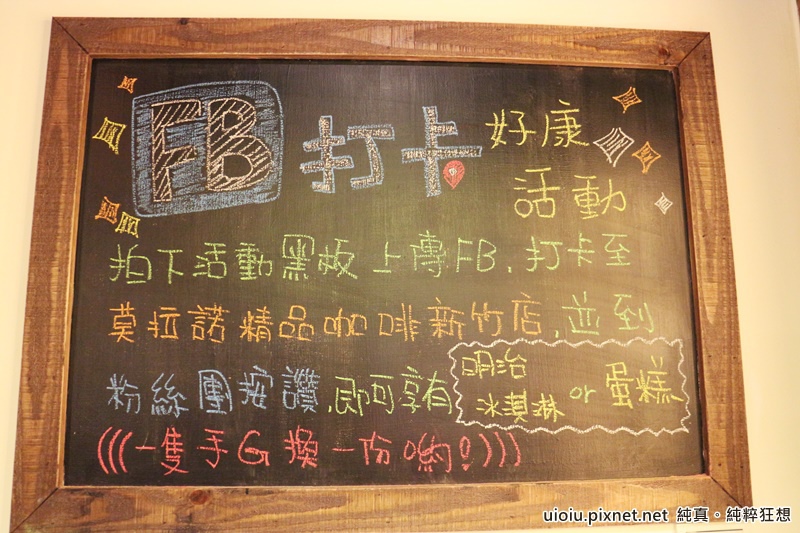 FB 打卡 好康
活動
拍下活動黑板上傳FB,打卡至
莫拉諾精品咖啡新竹店,並到
粉絲團按讚,即可享有 明治冰淇淋 or 蛋糕
(((一隻手G換一份喲!)))
uioiu.pixnet.net 純真。純粹狂想